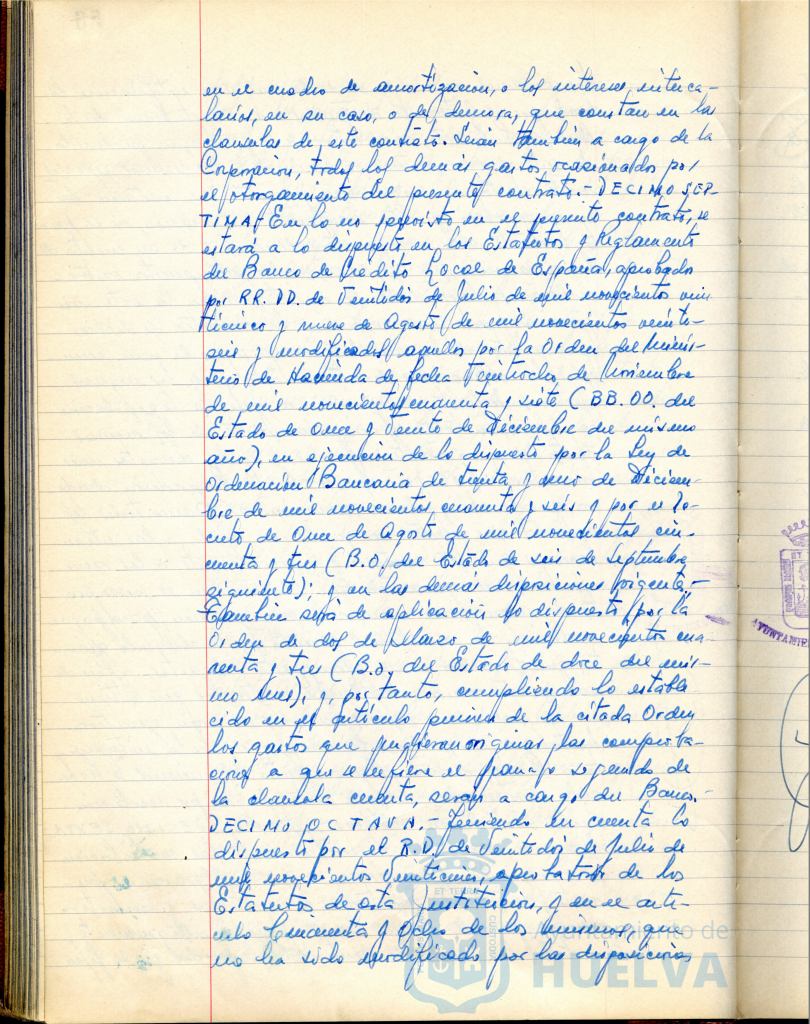 en el cuadro de amortización, o los intereses interca-
larios, en su caso, o de demora, que constan en las
clausulas de este contrato. Serán también a cargo de la
Corporación, todos los demás gastos, ocasionados por
el otorgamiento del presente contrato.- DECIMO SEP-
TIMA.- En lo no previsto en el presente contrato, se
estará a lo dispuesto en los Estatutos y Reglamento
del Banco de Crédito Local de España, aprobados
por RR. DD. de Veintidos de Julio de mil novecientos vein-
ticinco y nueve de Agosto de mil novecientos veinti-
seis y modificados aquellos por la Orden del Minis-
terio de Hacienda de fecha Veintiocho de Noviembre
de mil novecientos cincuenta y siete (BB. OO. del
Estado de Once y Veinte de Diciembre del mismo
año), en ejecucion de lo dispuesto por la Ley de
Ordenación Bancaria de treinta y uno de Diciem-
bre de mil novecientos cuarenta y seis y por el De-
creto de Once de Agosto de mil novecientos cin-
cuenta y tres (B.O. del Estado de seis de septiembre
siguiente); y en las demás disposiciones vigentes.-
También será de aplicación lo dispuesto por la
Orden de dos de Marzo de mil novecientos cua-
renta y tres (B.O. del Estado de doce del mis-
mo mes), y, por tanto, cumpliendo lo estable
cido en el artículo primero de la citada Orden
los gastos que pudieran originar las comproba-
ciones a que se refiere el párrafo segundo de
la clausula cuarta, serán a cargo del Banco.-
DECIMO OCTAVA.- Teniendo en cuenta lo
dispuesto por el R.D. de Veintidos de Julio de
mil novecientos Veinticinco, aprobatorio de los
Estatutos de esta Institucion, y en el artí-
culo Cincuenta y Ocho de los mismos, que
no ha sido modificado por las disposiciones
Ayuntamiento de
HUELVA